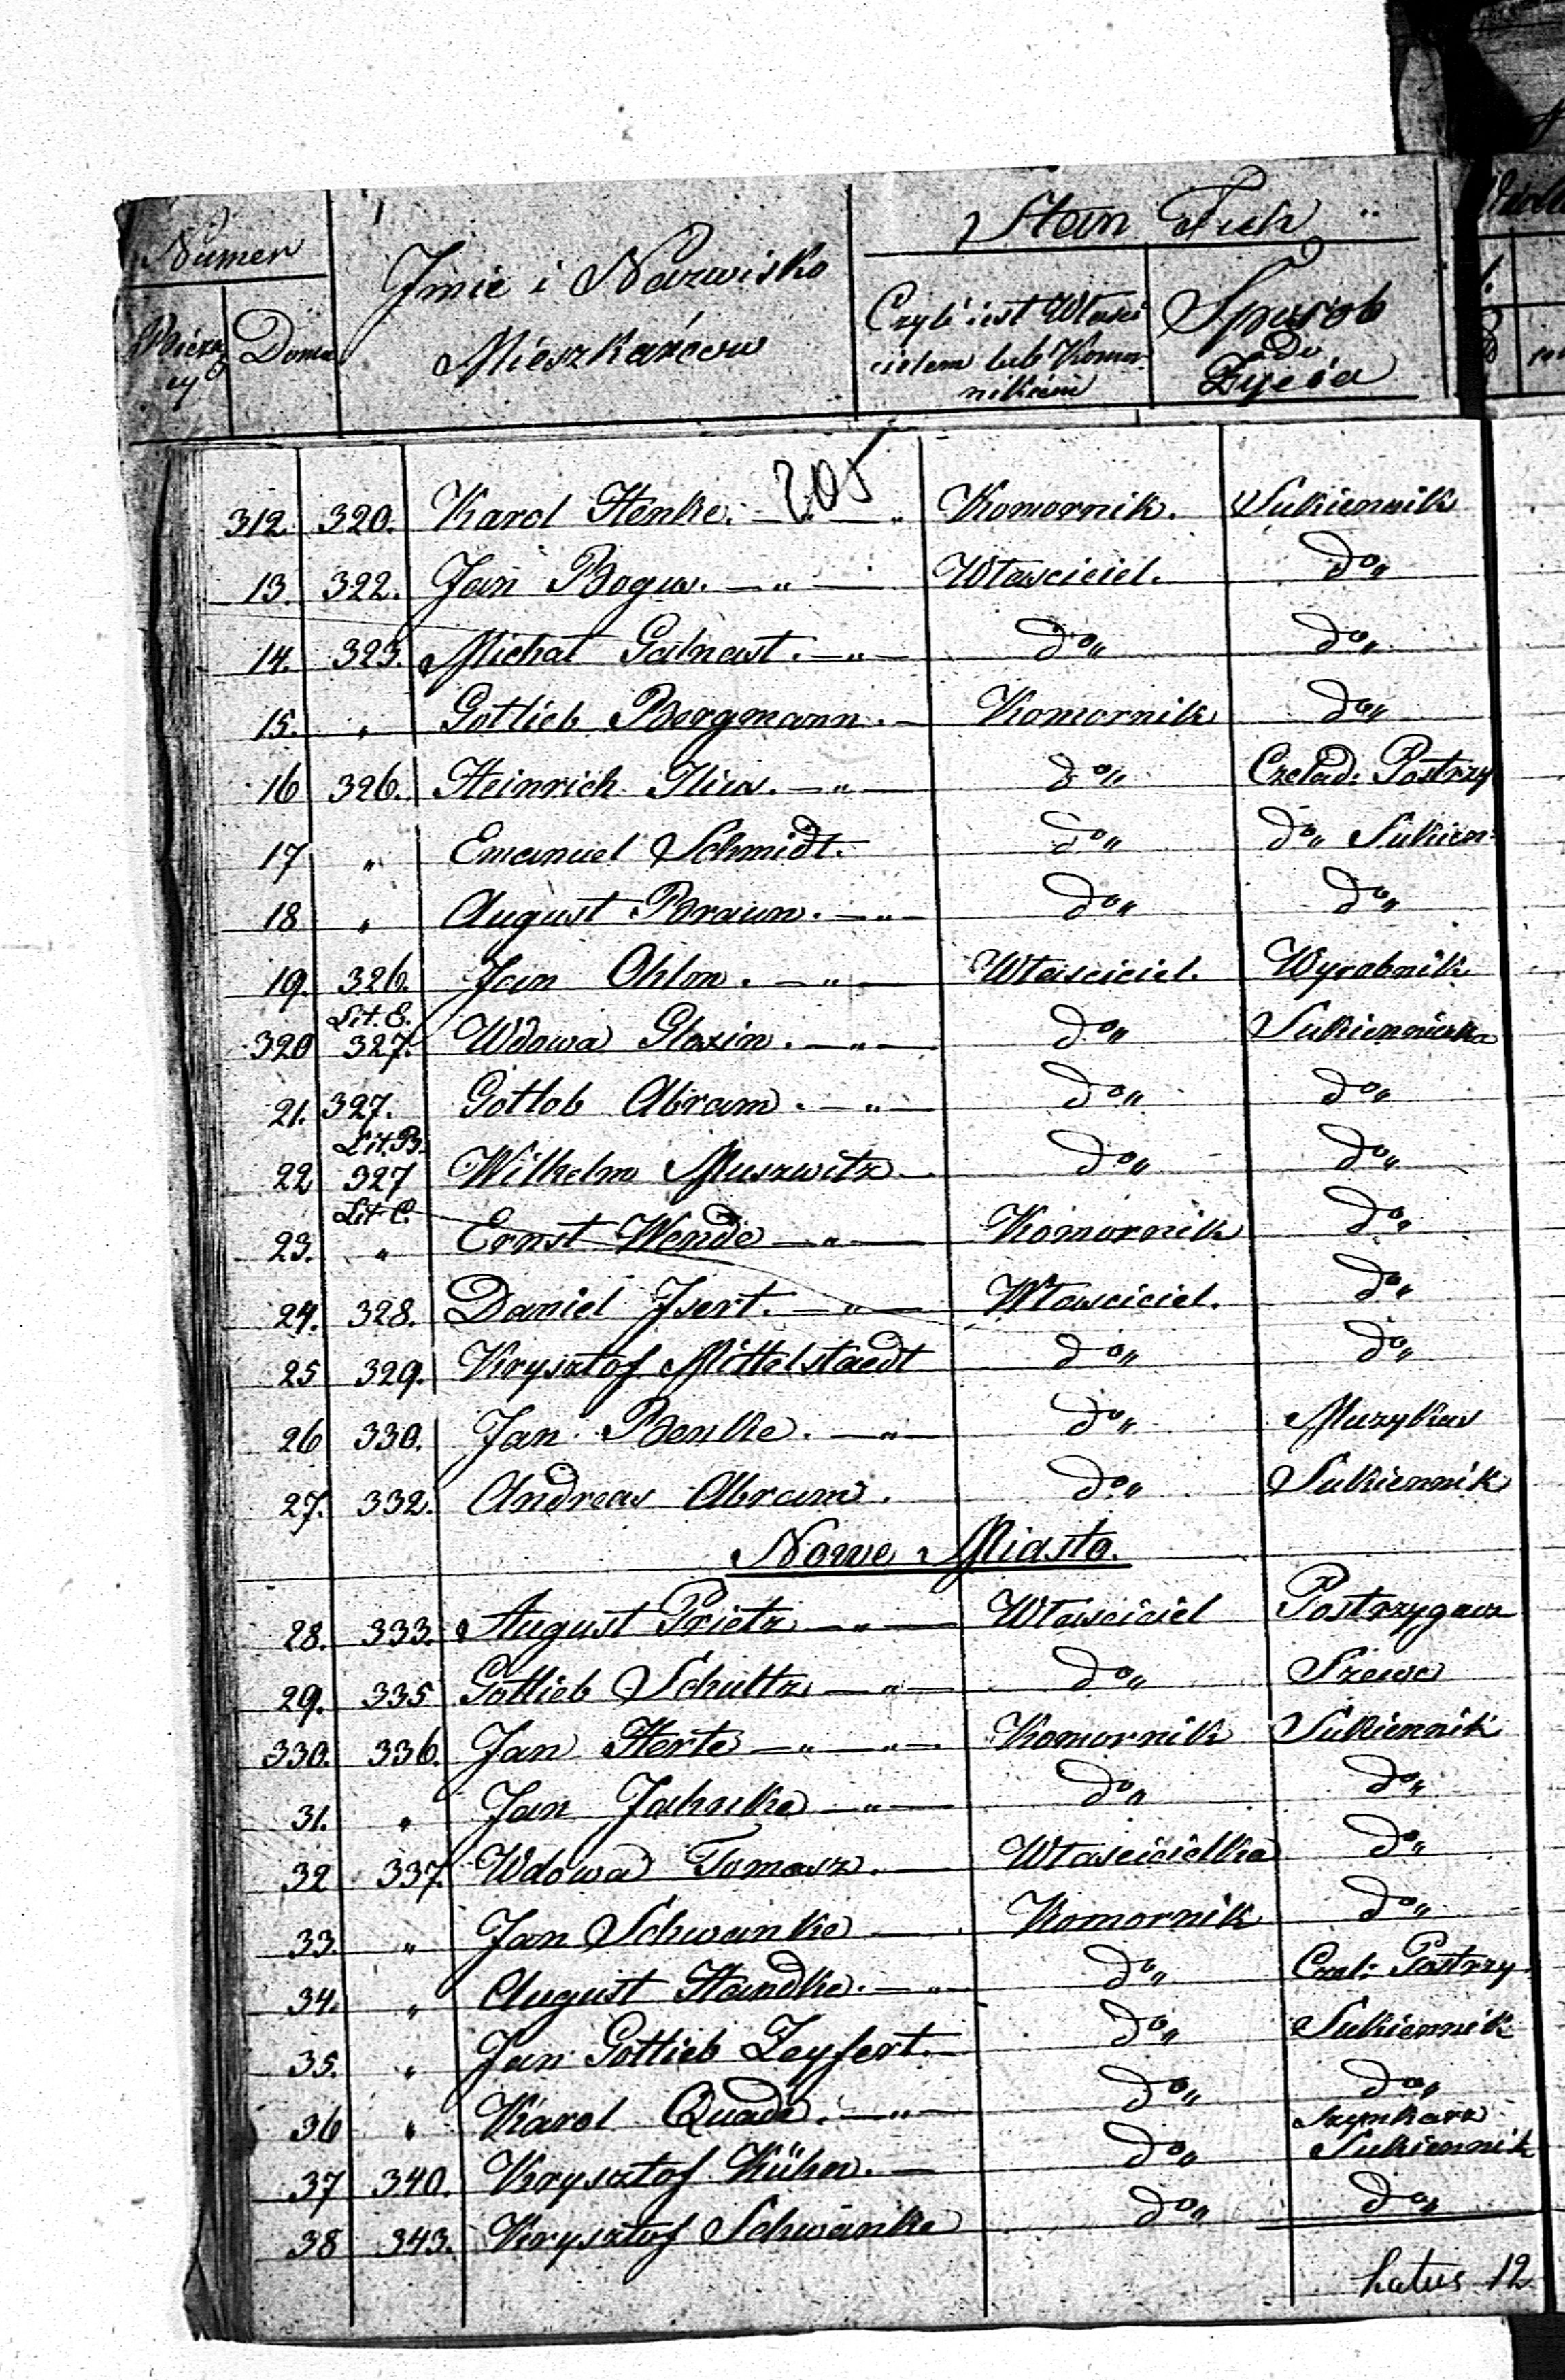 Numer
Jmie i Nazwisko Mieszkańców
Stan Tych
Bieżący
Domu
Czyli iest Właścicielem lub Komornikiem
Sposób do Życia
205
312. 320. Karol Henke. — „ Komornik. Sukiennik
13. 322. Jan Bogus. — „ — Własciciel. do„
14. 323. Michał Galnast. — „ — do„ do„
15. „ Gotlieb Bergmann. — Komornik do„
16 326. Heinrich — „ — do„ Czelad: Postrzy
17 „ Emanuel Schmidt. do„ do„ Sukien:
18 „ August Braun. — „ — do„ do„
19. 326. Jan Ohlon. — „ — Własciciel. Wyrobnik
Lit. E.
320 327. Wdowa Glaxin. — „ — do„ Sukienniczka
21. 327. Gotlob Abram. — „ — do„ do„
Lit. B.
22 327 Wilhelm Muszwitz — do„ do„
Lit. C.
23. „ Ernst Wende — „ — Komornik do„
24. 328. Daniel Jsert. — „ — Własciciel. do„
25 329. Krysztof Mittelstaedt do„ do„
26 330. Jan Benke. — „ — do„ Muzykus
27. 332. Andreas Abram. do„ Sukiennik
Nowe Miasto.
28. 333. August Prietz — „ — Własciciel Postrzygacz
29. 335 Gotlieb Schultz — „ — do„ Szewc
330. 336. Jan Herte — „ — „ — Komornik Sukiennik
31. „ Jan Jahnke — „ — do„ do„
32 337. Wdowa Tomasz. — Włascicielka do„
33. „ Jan Schwanke — Komornik do„
34. „ August Handke. — „ — do„ Czel: Postrzy.
35. „ Jan Gottlieb Zeyfert. — do„ Sukiennik
36 „ Karol Quade. — „ — do„ do„
Szynkarz
37 340. Krysztof Kühn. — do„ Sukiennik
38 343. Krysztof Schwanke do„ do„
Latus 12